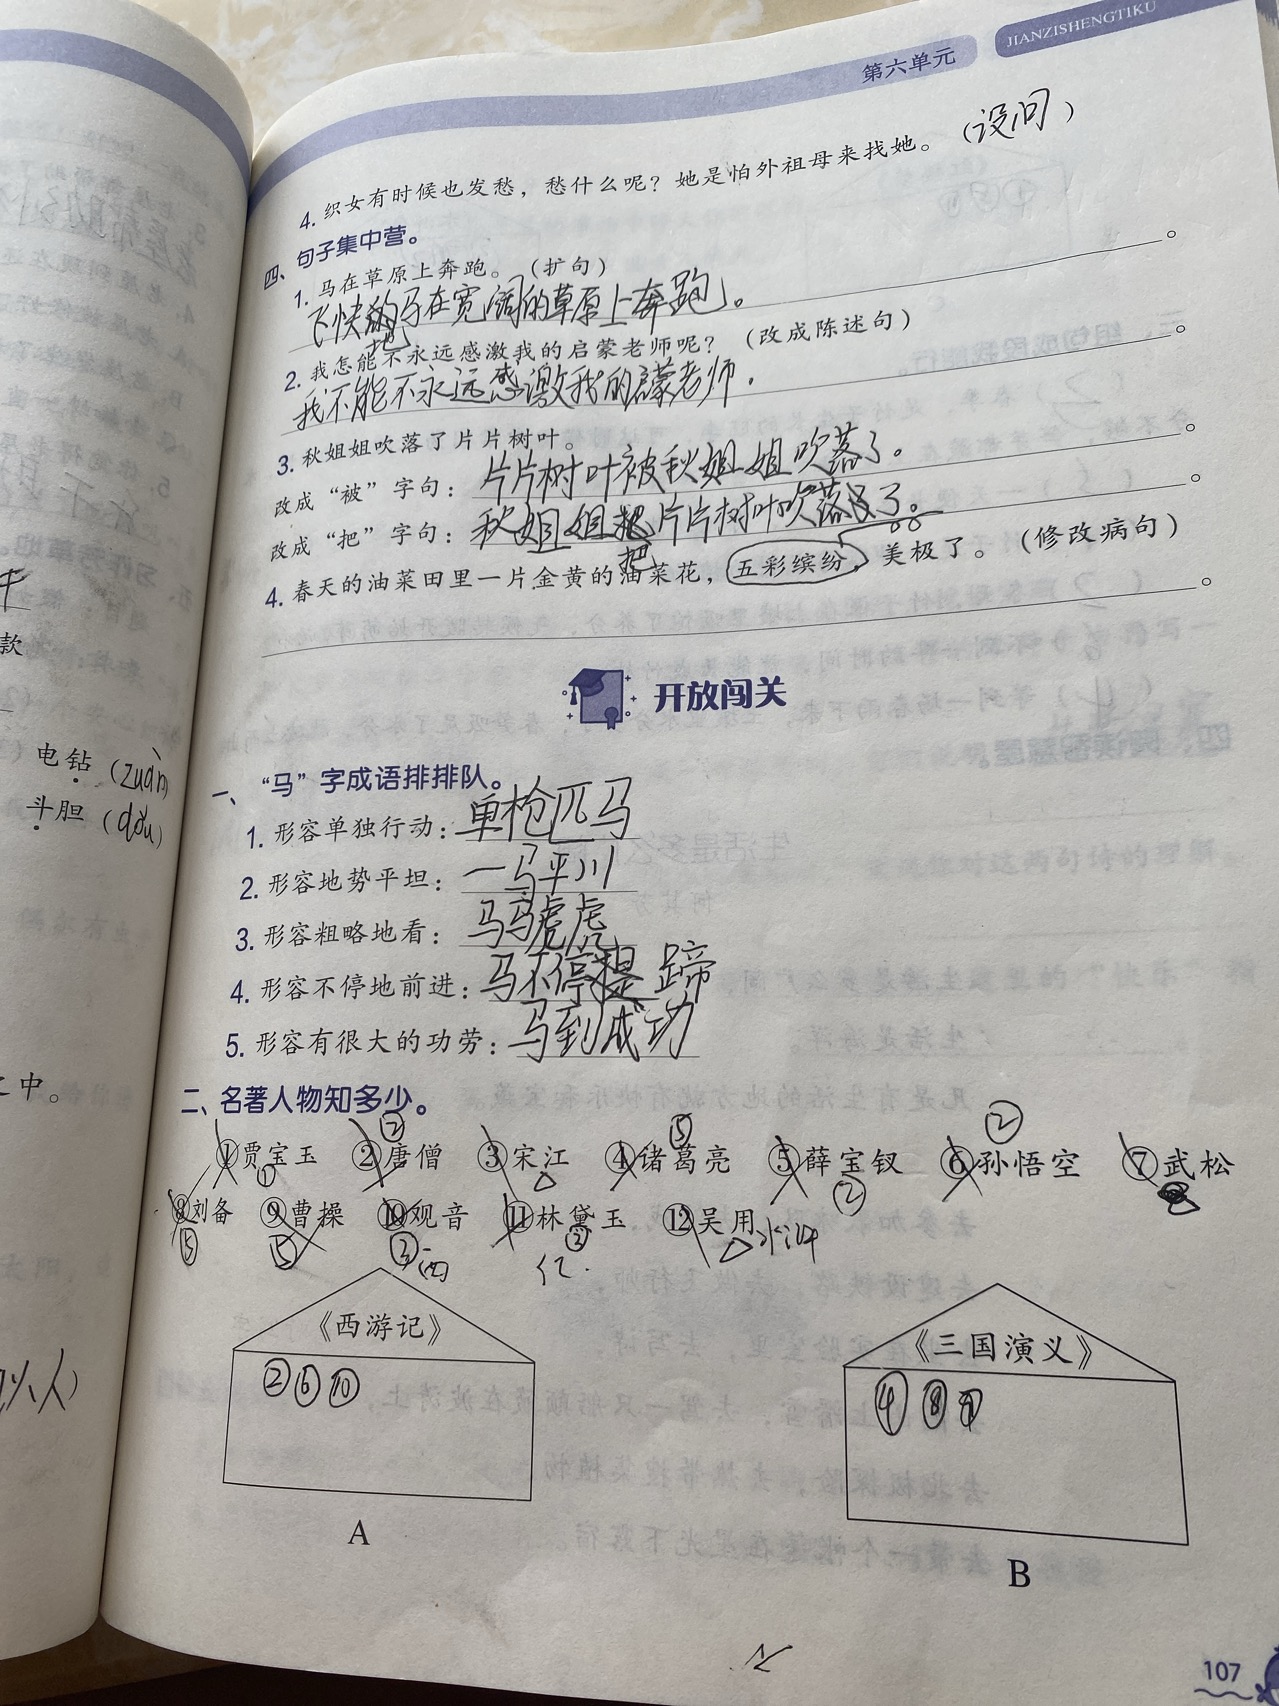 JIANZISHENGTIKU
第六单元
4. 织女有时候也发愁，愁什么呢？她是怕外祖母来找她。（设问）
四、句子集中营。
1. 马在草原上奔跑。（扩句）
飞快的马在宽阔的草原上奔跑。
地
2. 我怎能不永远感激我的启蒙老师呢？（改成陈述句）
我不能不永远感激我的启蒙老师。
3. 秋姐姐吹落了片片树叶。
改成“被”字句：片片树叶被秋姐姐吹落了。
改成“把”字句：秋姐姐把片片树叶吹落了。
把
4. 春天的油菜田里一片金黄的油菜花，五彩缤纷，美极了。（修改病句）
开放闯关
一、“马”字成语排排队。
1. 形容单独行动：单枪匹马
2. 形容地势平坦：一马平川
3. 形容粗略地看：马马虎虎
4. 形容不停地前进：马不停提蹄
5. 形容有很大的功劳：马到成功
二、名著人物知多少。
② ⑤ ②
①贾宝玉 ②唐僧 ③宋江 ④诸葛亮 ⑤薛宝钗 ⑥孙悟空 ⑦武松
① ②
⑧刘备 ⑨曹操 ⑩观音 ⑪林黛玉 ⑫吴用 水浒
⑤ ⑤ ② 西 ②
《西游记》 《三国演义》
②⑥⑩ ④⑧⑨
A B
107
电钻（zuàn）
斗胆（dǒu）
款
中。
以人）